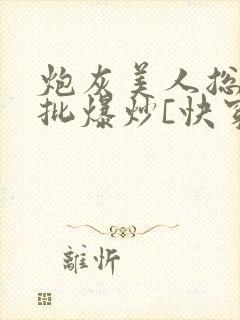 炮灰美人
批爆炒[快
離忻